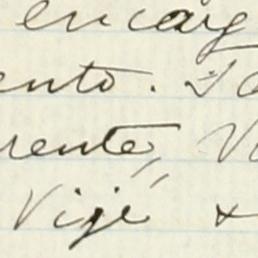 encarg
ento. Ta
rente, V
Vijé +